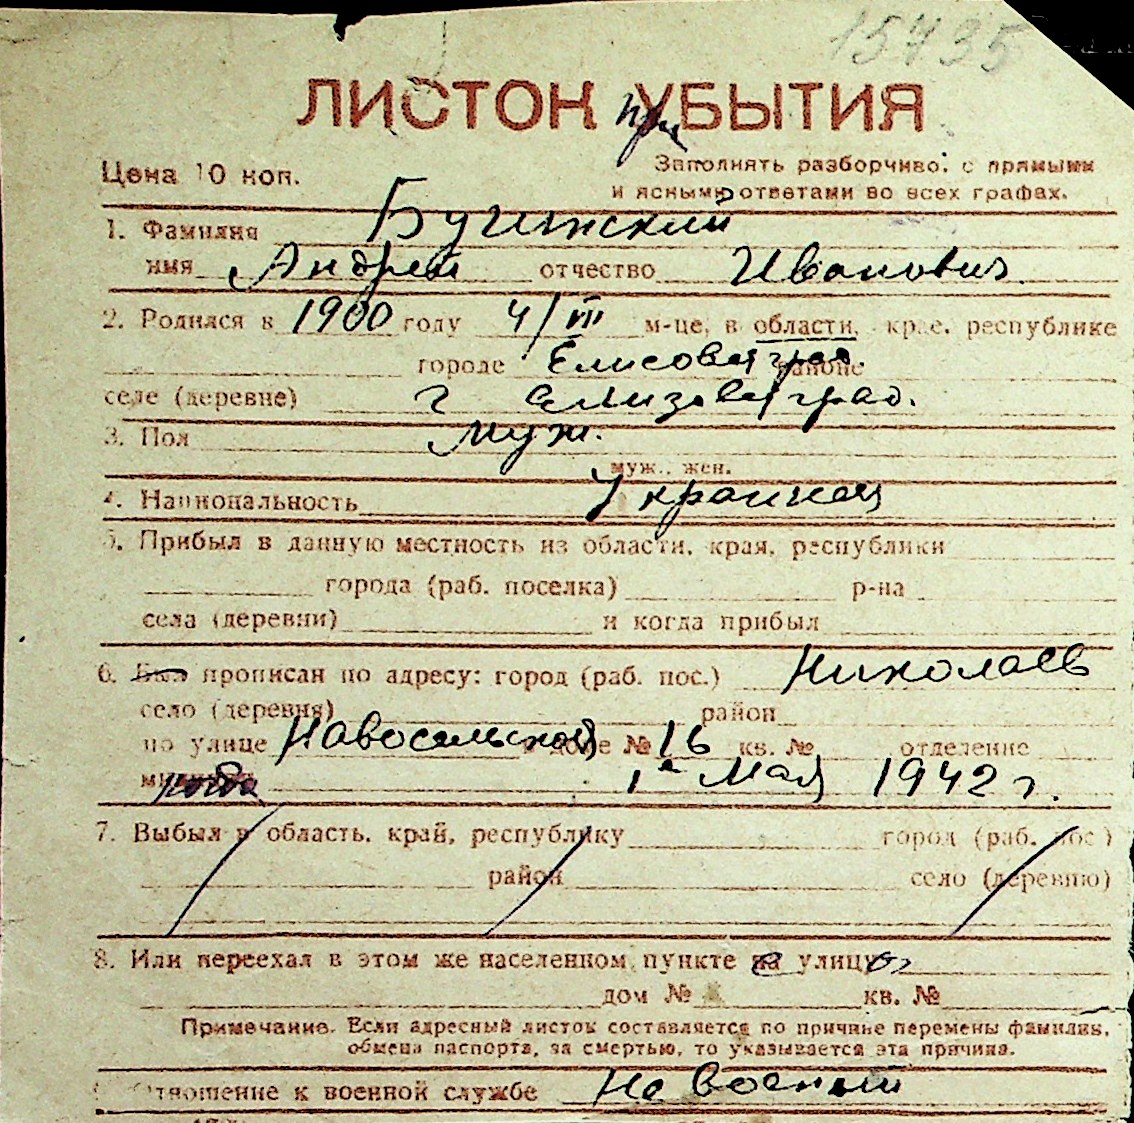 15735
ЛИСТОК при УБЫТИЯ
Цена 10 коп.
Заполнять разборчиво, с прямыми
и ясными ответами во всех графах.
1. Фамилия Бучинский
имя Андрей отчество Иванович
2. Родился в 1900 году 4/VII м-це, в области, крае, республике
городе Елисоветград. районе
селе (деревне) г Елизоветград.
3. Пол муж.
муж., жен.
4. Национальность Украинец
5. Прибыл в данную местность из области, края, республики
города (раб. поселка) р-на
села (деревни) и когда прибыл
6. Был прописан по адресу: город (раб. пос.) Николаев
село (деревня) район
по улице Новосельской доме № 16 кв. № отделение
когда 1го Мая 1942 г.
7. Выбыл в область, край, республику город (раб. пос.)
район село (деревню)
8. Или переехал в этом же населенном пункте с улицы
дом № кв. №
Примечание. Если адресный листок составляется по причине перемены фамилии,
обмена паспорта, за смертью, то указывается эта причина.
Отношение к военной службе Не военный